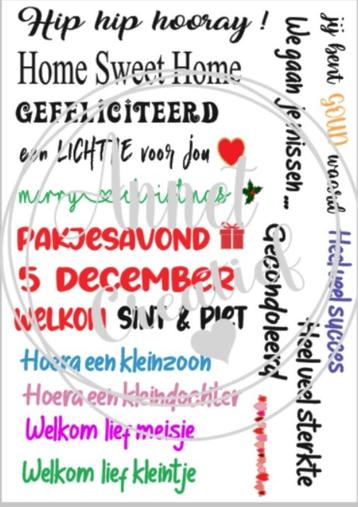 Hip hip hooray !
Home Sweet Home
GEFELICITEERD
een LICHTJE voor jou
merry christmas
PAKJESAVOND
5 DECEMBER
WELKOM SINT & PIET
Hoera een kleinzoon
Hoera een kleindochter
Welkom lief meisje
Welkom lief kleintje
jij bent GOUD waard
We gaan je missen ...
Heel veel succes
Gecondoleerd
Heel veel sterkte
Annet
Creatief